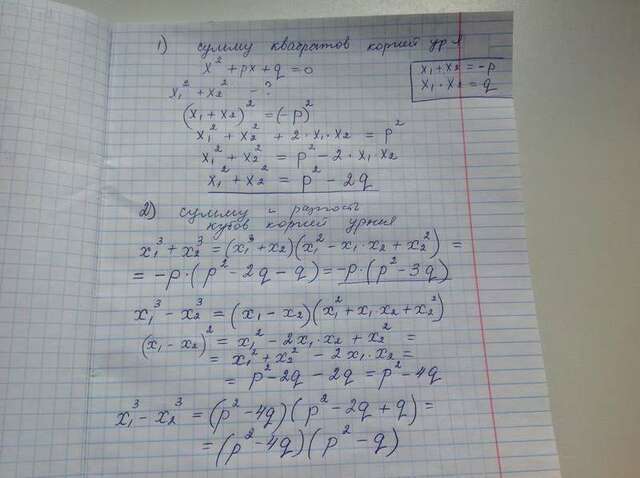 1) сумму квадратов корней ур-я
x² + px + q = 0
x₁ + x₂ = -p
x₁ · x₂ = q
x₁² + x₂² - ?
(x₁ + x₂)² = (-p)²
x₁² + x₂² + 2 · x₁ · x₂ = p²
x₁² + x₂² = p² - 2 · x₁ x₂
x₁² + x₂² = p² - 2q
2) сумму и разность
кубов корней ур-ния
x₁³ + x₂³ = (x₁³ + x₂)(x₁² - x₁ · x₂ + x₂²) =
= -p · (p² - 2q - q) = -p · (p² - 3q)
x₁³ - x₂³ = (x₁ - x₂)(x₁² + x₁ x₂ + x₂²)
(x₁ - x₂)² = x₁² - 2x₁ · x₂ + x₂² =
= x₁² + x₂² - 2x₁ x₂ =
= p² - 2q - 2q = p² - 4q
x₁³ - x₂³ = (p² - 4q)(p² - 2q + q) =
= (p² - 4q)(p² - q)